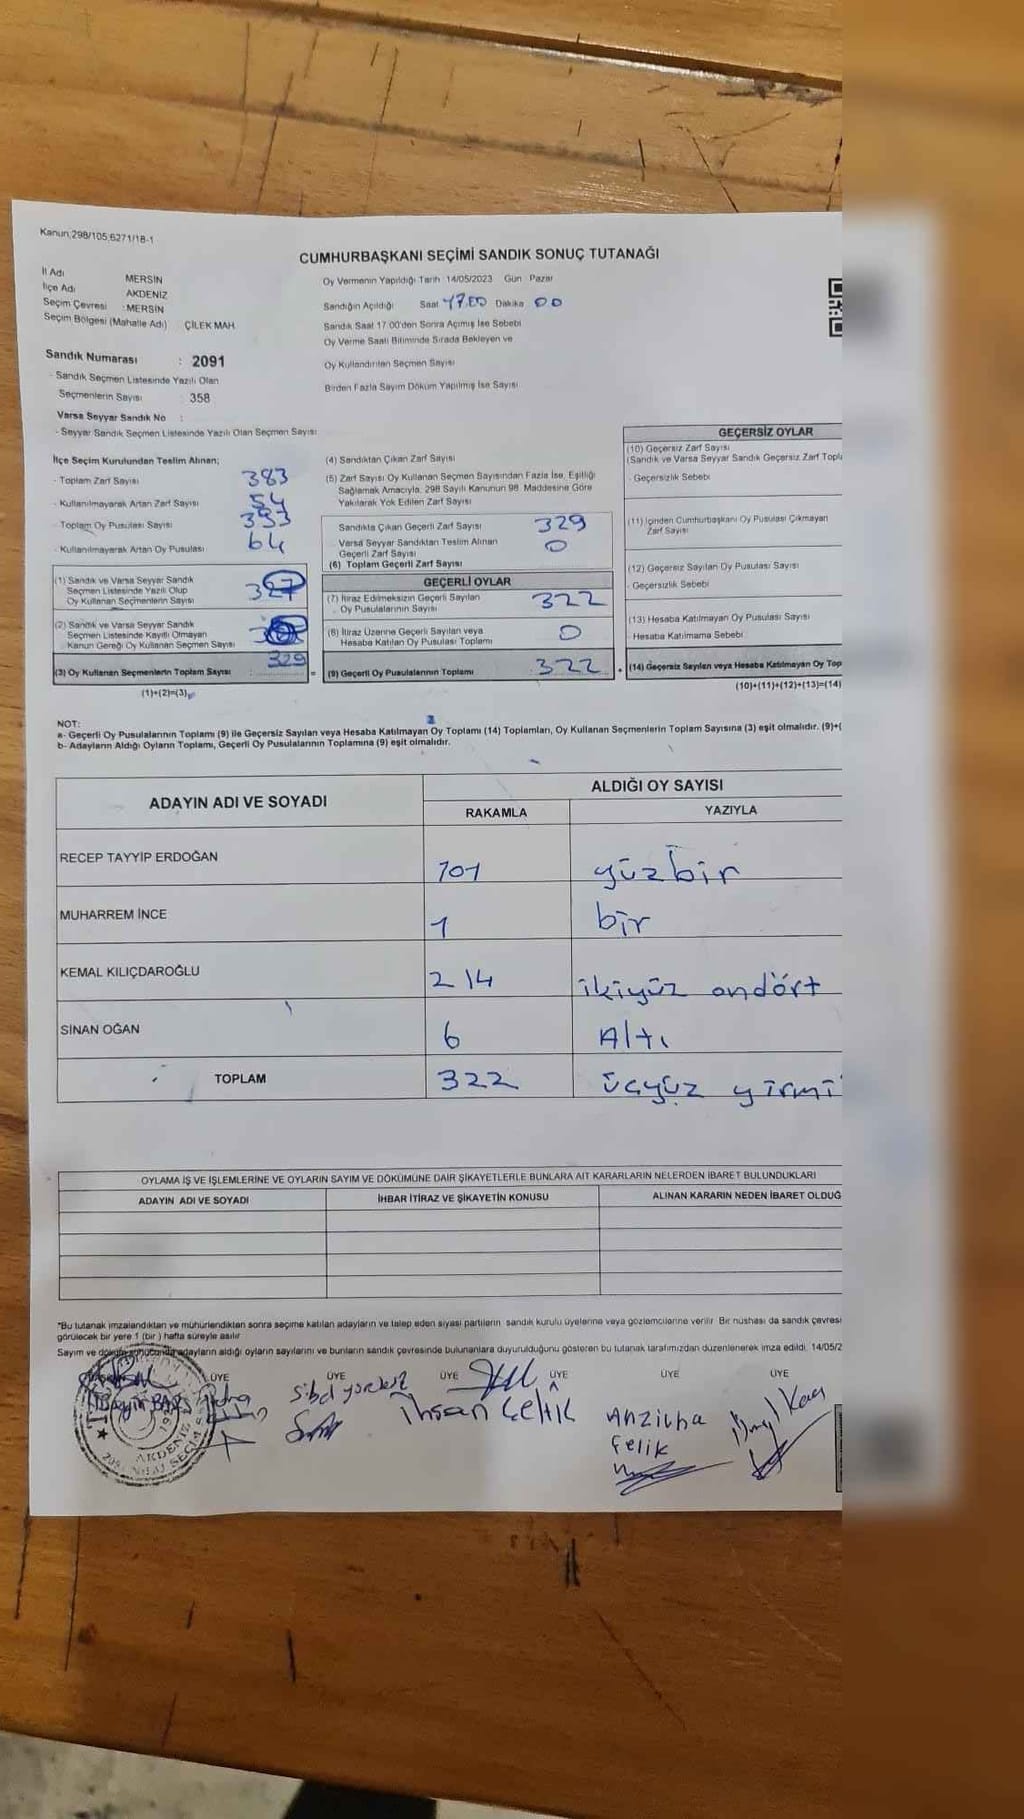 Kanun;298/105,6271/18-1
CUMHURBAŞKANI SEÇİMİ SANDIK SONUÇ TUTANAĞI
İl Adı MERSİN
İlçe Adı AKDENİZ
Seçim Çevresi MERSİN
Seçim Bölgesi (Mahalle Adı) ÇİLEK MAH.
Sandık Numarası : 2091
- Sandık Seçmen Listesinde Yazılı Olan
Seçmenlerin Sayısı : 358
Varsa Seyyar Sandık No :
- Seyyar Sandık Seçmen Listesinde Yazılı Olan Seçmen Sayısı:
Oy Vermenin Yapıldığı Tarih : 14/05/2023 Gün : Pazar
Sandığın Açıldığı Saat 17.00 Dakika 00
Sandık Saat 17:00'den Sonra Açımış İse Sebebi
Oy Verme Saati Bitiminde Sırada Bekleyen ve
Oy Kullandırılan Seçmen Sayısı
Birden Fazla Sayım Döküm Yapılmış İse Sayısı
İlçe Seçim Kurulundan Teslim Alınan;
- Toplam Zarf Sayısı 383
- Kullanılmayarak Artan Zarf Sayısı 54
- Toplam Oy Pusulası Sayısı 393
- Kullanılmayarak Artan Oy Pusulası 64
(1) Sandık ve Varsa Seyyar Sandık
Seçmen Listesinde Yazılı Olup
Oy Kullanan Seçmenlerin Sayısı
(2) Sandık ve Varsa Seyyar Sandık
Seçmen Listesinde Kayıtlı Olmayan
Kanun Gereği Oy Kullanan Seçmen Sayısı
(3) Oy Kullanan Seçmenlerin Toplam Sayısı : 329
(1)+(2)=(3)
(4) Sandıktan Çıkan Zarf Sayısı
(5) Zarf Sayısı Oy Kullanan Seçmen Sayısından Fazla İse, Eşitliği
Sağlamak Amacıyla, 298 Sayılı Kanunun 98. Maddesine Göre
Yakılarak Yok Edilen Zarf Sayısı
Sandıkta Çıkan Geçerli Zarf Sayısı 329
Varsa Seyyar Sandıktan Teslim Alınan
Geçerli Zarf Sayısı 0
(6) Toplam Geçerli Zarf Sayısı
GEÇERLİ OYLAR
(7) İtiraz Edilmeksizin Geçerli Sayılan
Oy Pusulalarının Sayısı 322
(8) İtiraz Üzerine Geçerli Sayılan veya
Hesaba Katılan Oy Pusulası Toplamı 0
= (9) Geçerli Oy Pusulalarının Toplamı 322 +
GEÇERSİZ OYLAR
(10) Geçersiz Zarf Sayısı
(Sandık ve Varsa Seyyar Sandık Geçersiz Zarf Topl
- Geçersizlik Sebebi
(11) İçinden Cumhurbaşkanı Oy Pusulası Çıkmayan
Zarf Sayısı
(12) Geçersiz Sayılan Oy Pusulası Sayısı
- Geçersizlik Sebebi
(13) Hesaba Katılmayan Oy Pusulası Sayısı
- Hesaba Katılmama Sebebi
(14) Geçersiz Sayılan veya Hesaba Katılmayan Oy Top
(10)+(11)+(12)+(13)=(14)
NOT:
a- Geçerli Oy Pusulalarının Toplamı (9) ile Geçersiz Sayılan veya Hesaba Katılmayan Oy Toplamı (14) Toplamları, Oy Kullanan Seçmenlerin Toplam Sayısına (3) eşit olmalıdır. (9)+(
b- Adayların Aldığı Oyların Toplamı, Geçerli Oy Pusulalarının Toplamına (9) eşit olmalıdır.
ADAYIN ADI VE SOYADI
ALDIĞI OY SAYISI
RAKAMLA YAZIYLA
RECEP TAYYİP ERDOĞAN 101 yüzbir
MUHARREM İNCE 1 bir
KEMAL KILIÇDAROĞLU 214 ikiyüz ondört
SİNAN OĞAN 6 Altı
TOPLAM 322 üçyüz yirmi
OYLAMA İŞ VE İŞLEMLERİNE VE OYLARIN SAYIM VE DÖKÜMÜNE DAİR ŞİKAYETLERLE BUNLARA AİT KARARLARIN NELERDEN İBARET BULUNDUKLARI
ADAYIN ADI VE SOYADI İHBAR İTİRAZ VE ŞİKAYETİN KONUSU ALINAN KARARIN NEDEN İBARET OLDUĞ
*Bu tutanak imzalandıktan ve mühürlendikten sonra seçime katılan adayların ve talep eden siyasi partilerin sandık kurulu üyelerine veya gözlemcilerine verilir. Bir nüshası da sandık çevresi
görülecek bir yere 1 (bir ) hafta süreyle asılır
Sayım ve döküm sonucunda adayların aldığı oyların sayılarını ve bunların sandık çevresinde bulunanlara duyurulduğunu gösteren bu tutanak tarafımızdan düzenlenerek imza edildi. 14/05/2
ÜYE ÜYE ÜYE ÜYE ÜYE ÜYE
Sibel
İhsan Çelik
Çelik
AKDENİZ